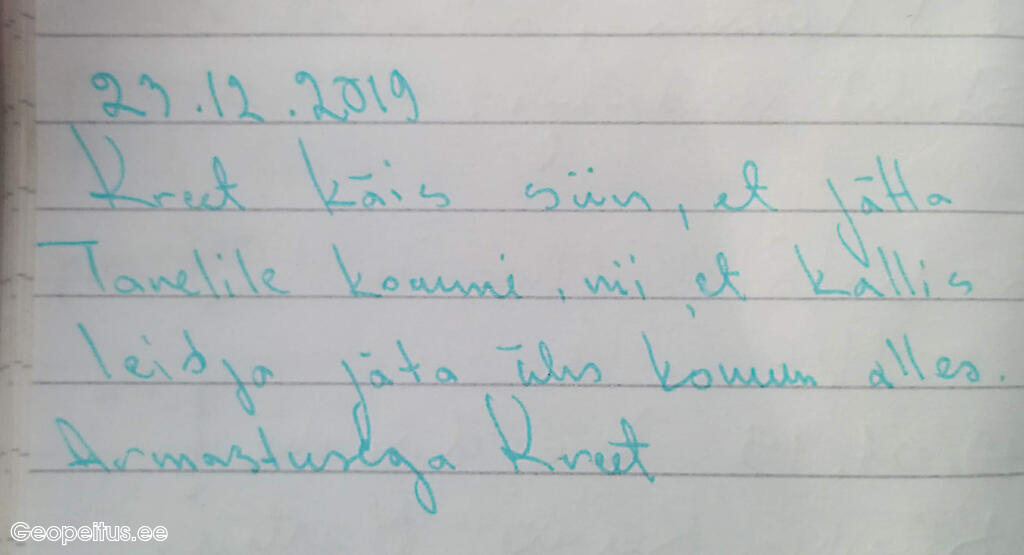 23.12.2019
Kreet käis siin, et jätta
Tanelile kommi, nii, et kallis
leidja jäta üks komm alles.
Armastusega Kreet
Geopeitus.ee